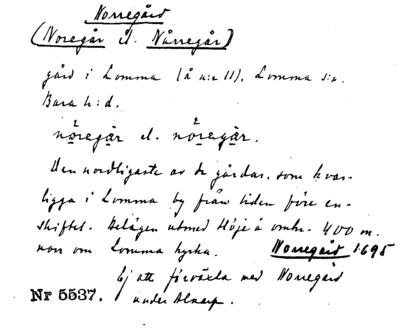 Norregård
(Noregår el. Nårregår)
gård i Lomma (å n:r 11). Lomma s:n.
Bara h:d.
nǫregår el. nǫregår.
Den nordligaste av de gårdar, som kvar-
ligga i Lomma by från tiden före en-
skiftet. Belägen utmed Höje å omkr. 400 m.
norr om Lomma kyrka. Norregård 1695
Ej att förväxla med Norregård
Nr 5537. under Alnarp.